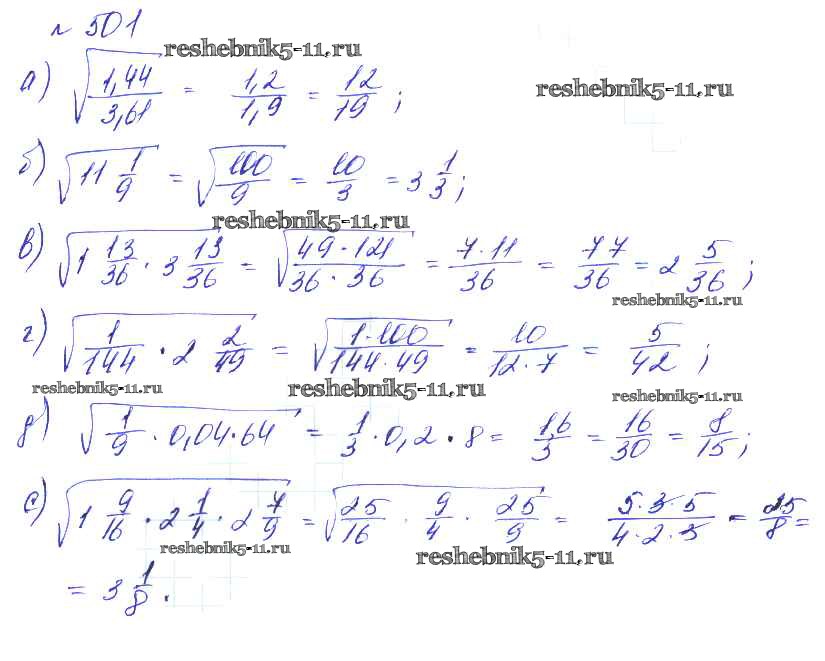 № 501
reshebnik5-11.ru
а) √(1,44/3,61) = 1,2/1,9 = 12/19 ;
reshebnik5-11.ru
б) √(11 1/9) = √(100/9) = 10/3 = 3 1/3 ;
reshebnik5-11.ru
в) √(1 13/36 · 3 13/36) = √((49 · 121)/(36 · 36)) = (7 · 11)/36 = 77/36 = 2 5/36 ;
reshebnik5-11.ru
г) √(1/144 · 2 2/49) = √((1 · 100)/(144 · 49)) = 10/(12 · 7) = 5/42 ;
reshebnik5-11.ru reshebnik5-11.ru reshebnik5-11.ru
д) √(1/9 · 0,04 · 64) = 1/3 · 0,2 · 8 = 1,6/3 = 16/30 = 8/15 ;
е) √(1 9/16 · 2 1/4 · 2 7/9) = √(25/16 · 9/4 · 25/9) = (5 · 3 · 5)/(4 · 2 · 3) = 25/8 =
reshebnik5-11.ru reshebnik5-11.ru
= 3 1/8 .